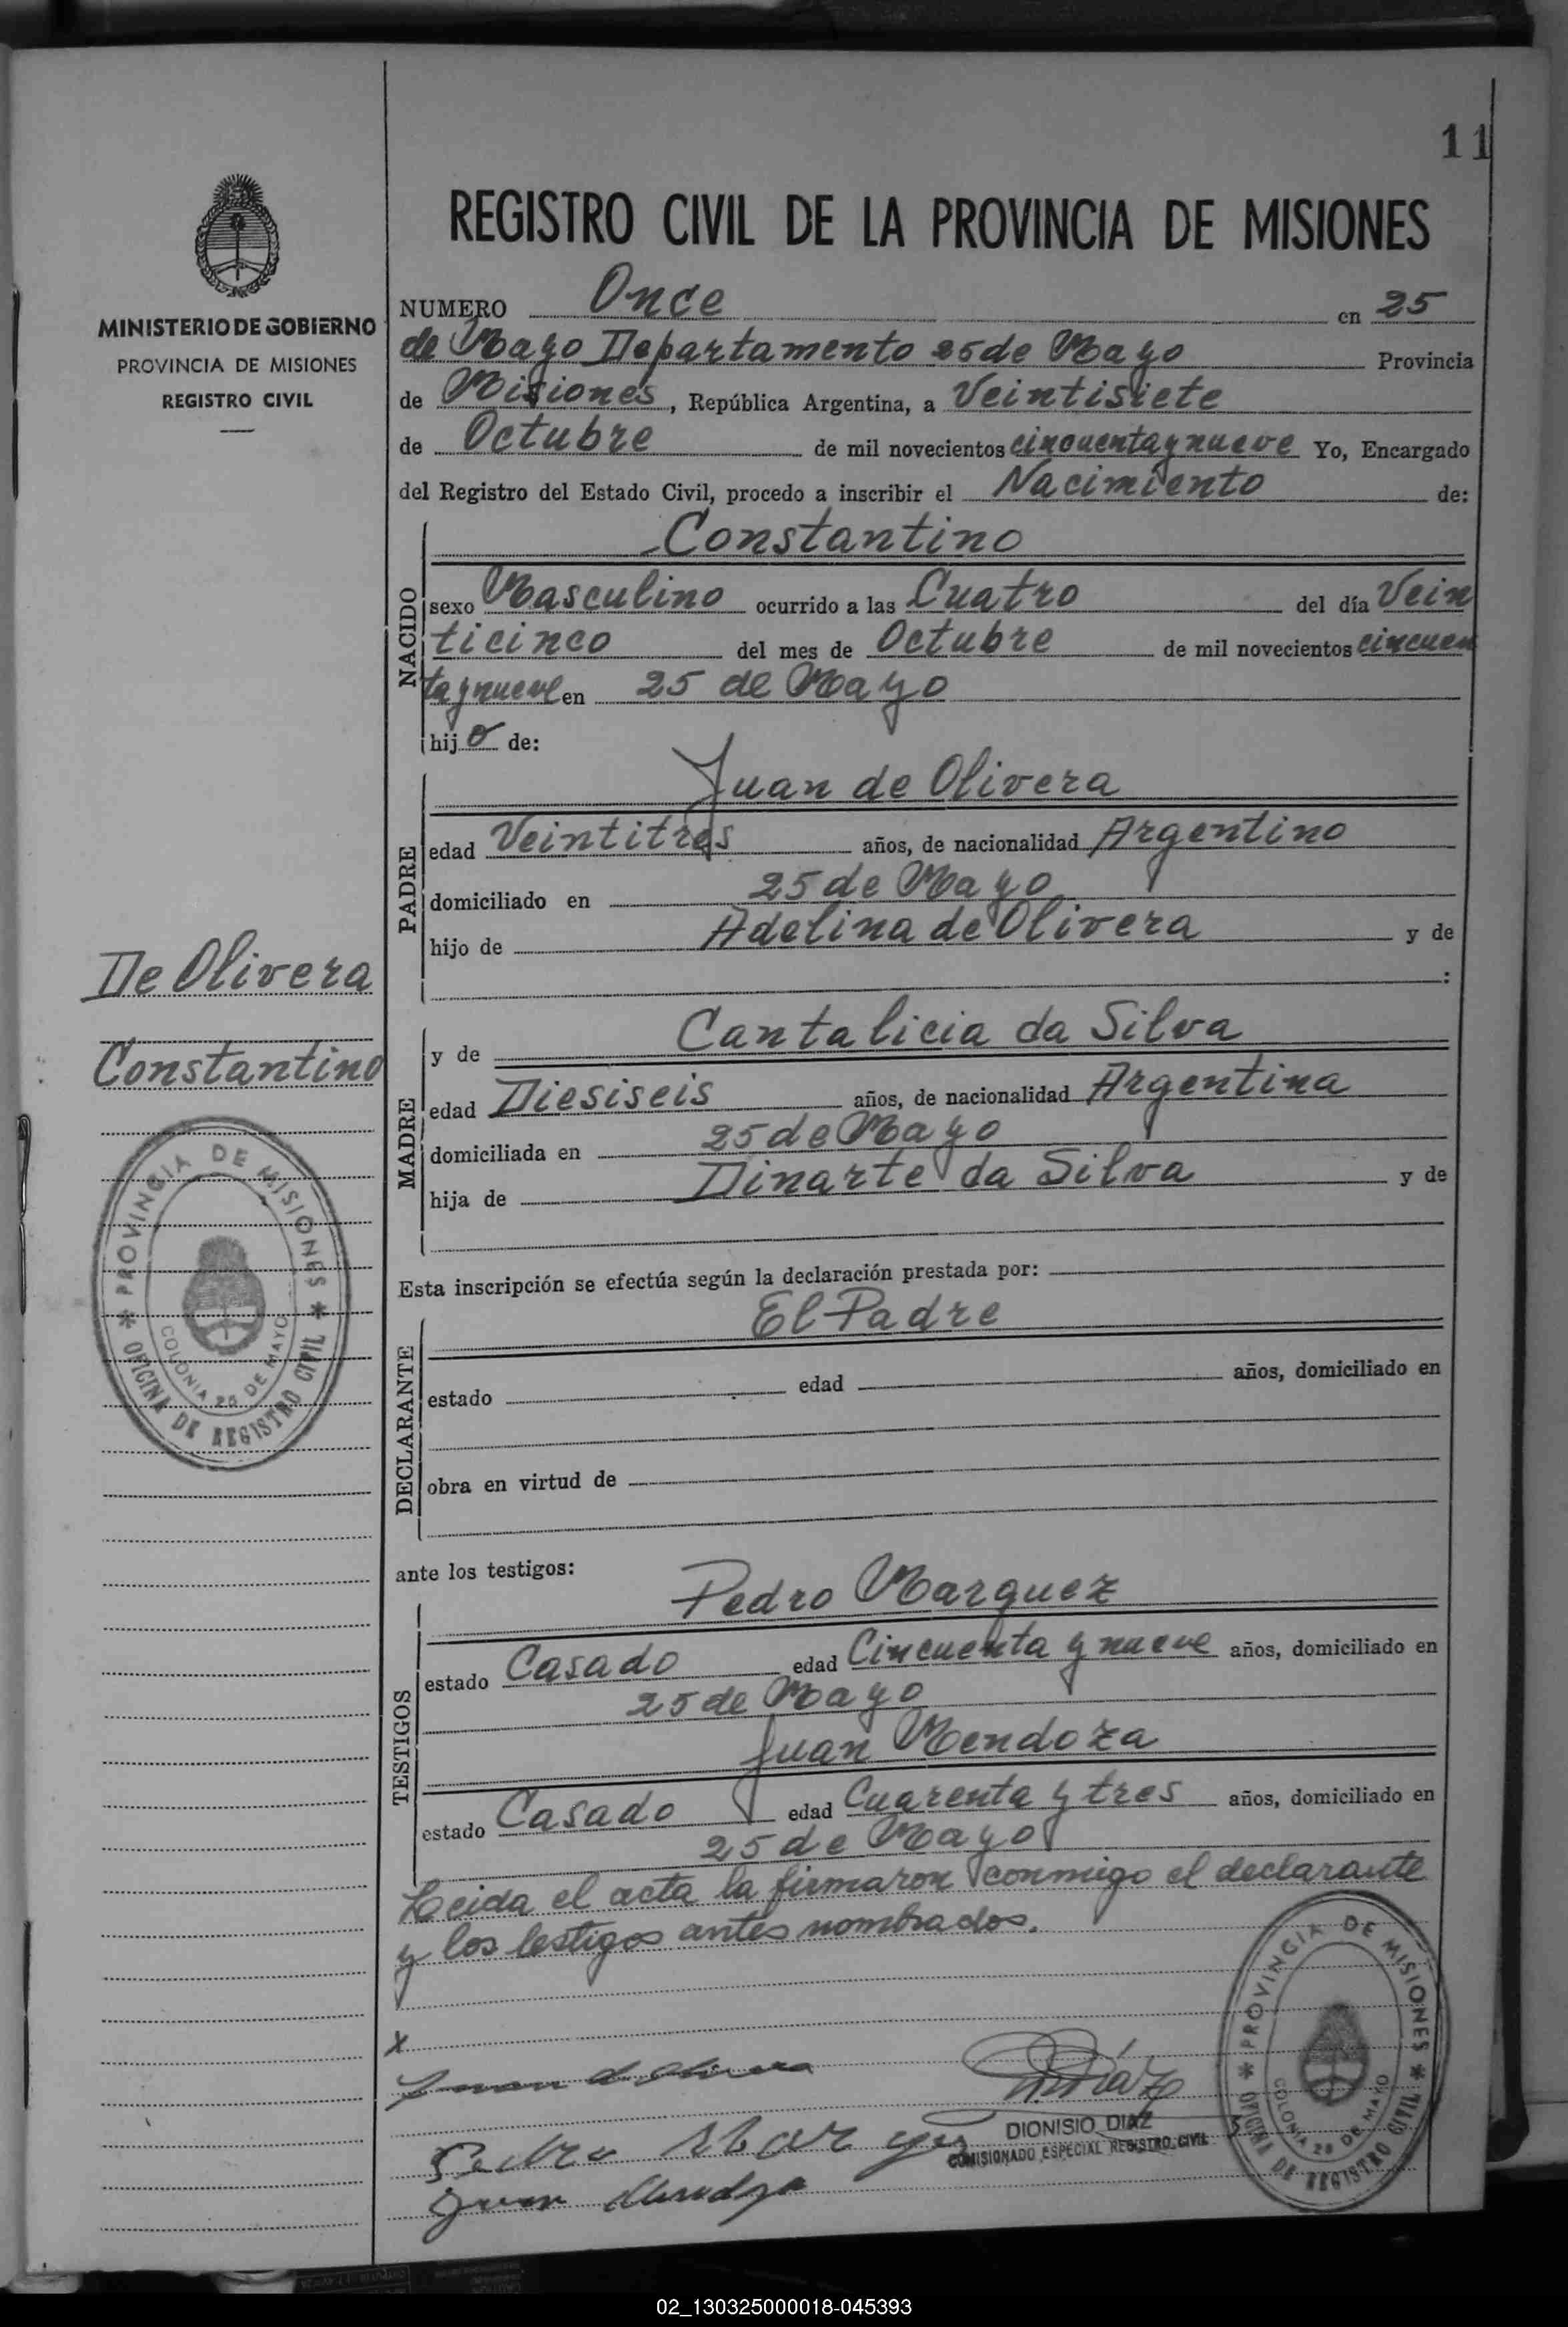 11
REGISTRO CIVIL DE LA PROVINCIA DE MISIONES
MINISTERIO DE GOBIERNO
PROVINCIA DE MISIONES
REGISTRO CIVIL
NUMERO Once en 25
de Mayo Departamento 25 de Mayo Provincia
de Misiones, República Argentina, a Veintisiete
de Octubre de mil novecientos cincuenta y nueve Yo, Encargado
del Registro del Estado Civil, procedo a inscribir el Nacimiento de:
NACIDO
Constantino
sexo Masculino ocurrido a las Cuatro del día Vein
ticinco del mes de Octubre de mil novecientos cincuen
ta y nueve en 25 de Mayo
hijo de:
PADRE
Juan de Olivera
edad Veintitres años, de nacionalidad Argentino
domiciliado en 25 de Mayo
hijo de Adelina de Olivera y de
:
De Olivera
Constantino
MADRE
y de Cantalicia da Silva
edad Diesiseis años, de nacionalidad Argentina
domiciliada en 25 de Mayo
hija de Dinarte da Silva y de
PROVINCIA DE MISIONES
COLONIA 25 DE MAYO
OFICINA DE REGISTRO CIVIL
Esta inscripción se efectúa según la declaración prestada por:
DECLARANTE
El Padre
estado edad años, domiciliado en
obra en virtud de
ante los testigos:
TESTIGOS
Pedro Marquez
estado Casado edad Cincuenta y nueve años, domiciliado en
25 de Mayo
Juan Mendoza
estado Casado edad Cuarenta y tres años, domiciliado en
25 de Mayo
Leida el acta la firmaron conmigo el declarante
y los testigos antes nombrados.
x
Juan de Olivera
D. Díaz
Pedro Marquez
DIONISIO DIAZ
COMISIONADO ESPECIAL REGISTRO CIVIL
Juan Mendoza
PROVINCIA DE MISIONES
COLONIA 25 DE MAYO
OFICINA DE REGISTRO CIVIL
02_130325000018-045393